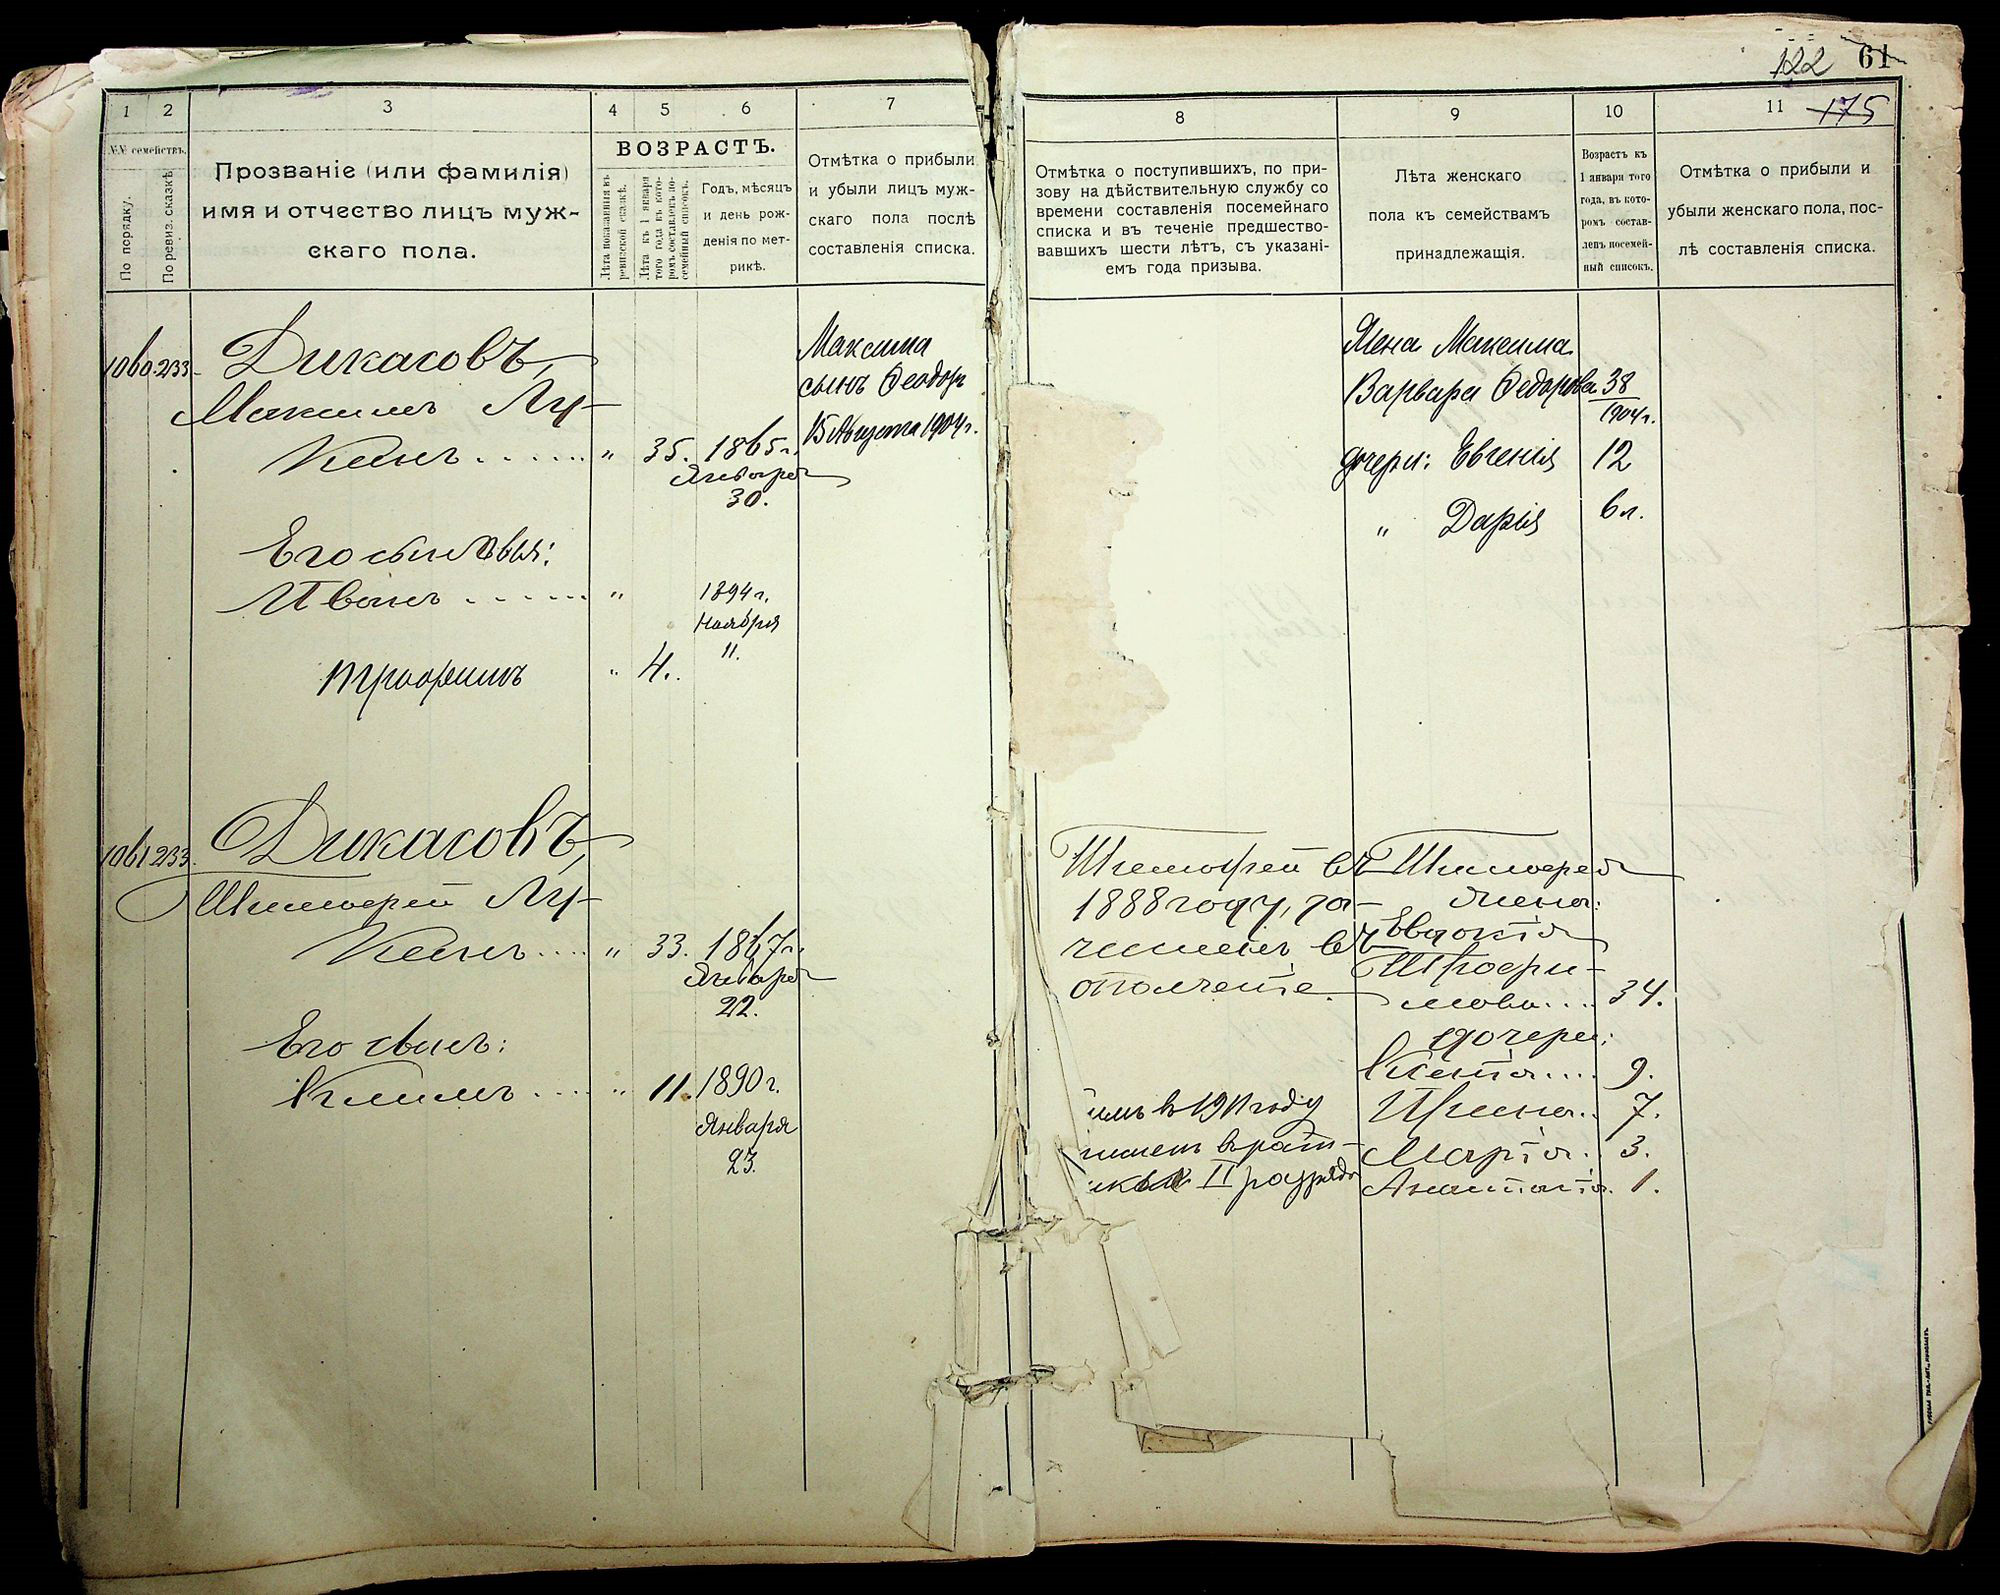 122 61
175
1 2 3 4 5 6 7
№№ семействъ.
По порядку.
По ревиз. сказкѣ.
Прозваніе (или фамилія)
имя и отчество лицъ муж-
скаго пола.
ВОЗРАСТЪ.
Лѣта показанныя въ
ревизской сказкѣ.
Лѣта къ 1 января
того года въ кото-
ромъ составленъ по-
семейный списокъ.
Годъ, мѣсяцъ
и день рож-
денія по мет-
рикѣ.
Отмѣтка о прибыли
и убыли лицъ муж-
скаго пола послѣ
составленія списка.
1060 233 Дикасовъ,
Максимъ Лу-
кинъ . . . . . . " 35. 1865 г.
Января
30.
Максима
сынъ Ѳеодоръ
15 Августа 1904 г.
Его сыновья:
Иванъ . . . . . . " 1894 г.
Ноября
11.
Трофимъ " 4.
1061 233. Дикасовъ,
Тимофей Лу-
кинъ . . . . " 33. 1867 г.
Января
22.
Его сынъ:
Климъ . . . . " 11. 1890 г.
Января
23.
8 9 10 11
Отмѣтка о поступившихъ, по при-
зову на дѣйствительную службу со
времени составленія посемейнаго
списка и въ теченіе предшество-
вавшихъ шести лѣтъ, съ указані-
емъ года призыва.
Лѣта женскаго
пола къ семействамъ
принадлежащія.
Возрастъ къ
1 января того
года, въ кото-
ромъ состав-
ленъ посемей-
ный списокъ.
Отмѣтка о прибыли и
убыли женскаго пола, пос-
лѣ составленія списка.
Жена Максима
Варвара Ѳедорова 38
1904 г.
дочери: Евгенія 12
" Дарія 6 л.
Тимофей въ
1888 году, за-
численъ въ
ополченіе.
Тимофея
жена:
Евдокія
Трофи-
мова . . . 34.
дочери:
Ксенія . . . . 9.
Ирина . . 7.
Марія . . 3.
Анастасія . 1.
имъ въ 1911 году
численъ въ рат-
ики II разряда